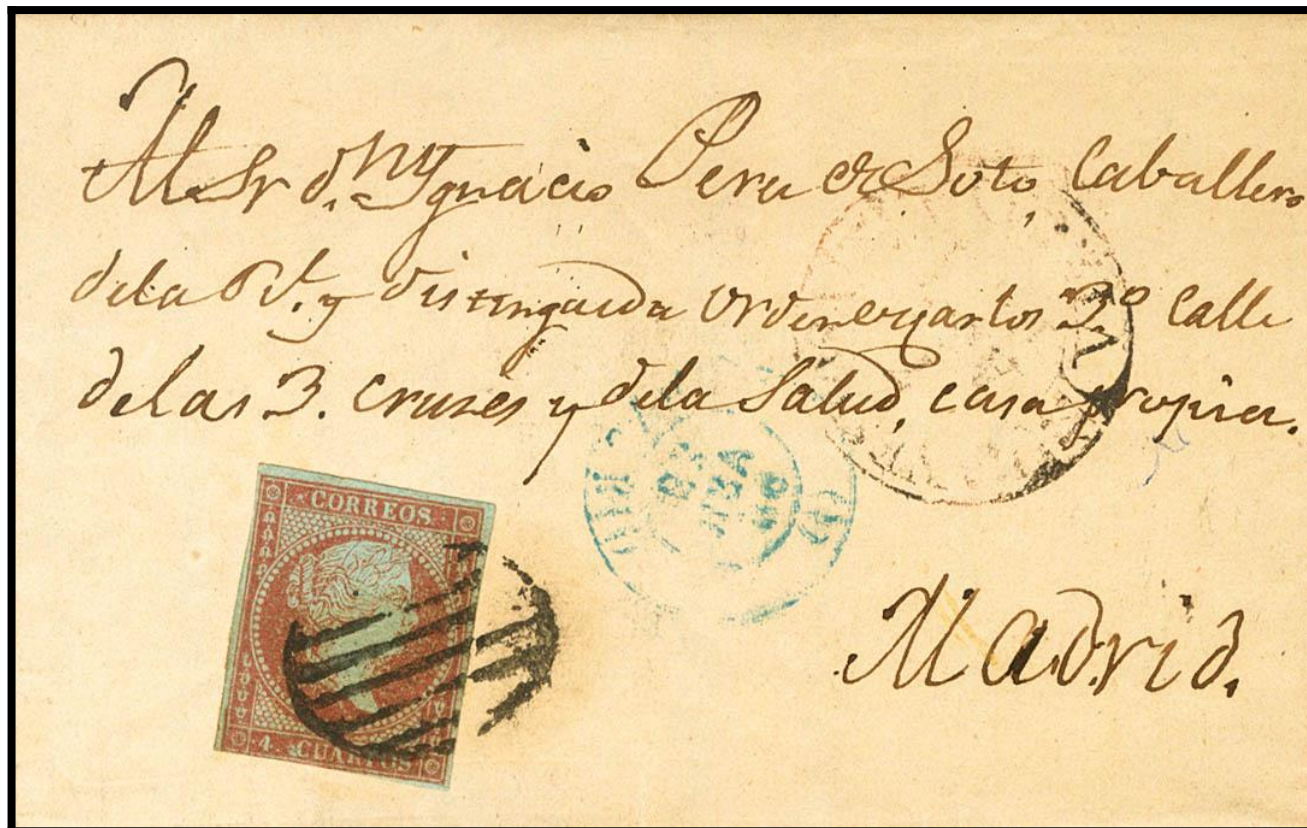 Al Sr d.n Ygnacio Pera de Soto, Caballero
dela Rl. y distinguida Orden cuartos 3º Calle
delas 3. cruzes y dela Salud, casa propia.
Madrid.
CORREOS
4. CUARTOS